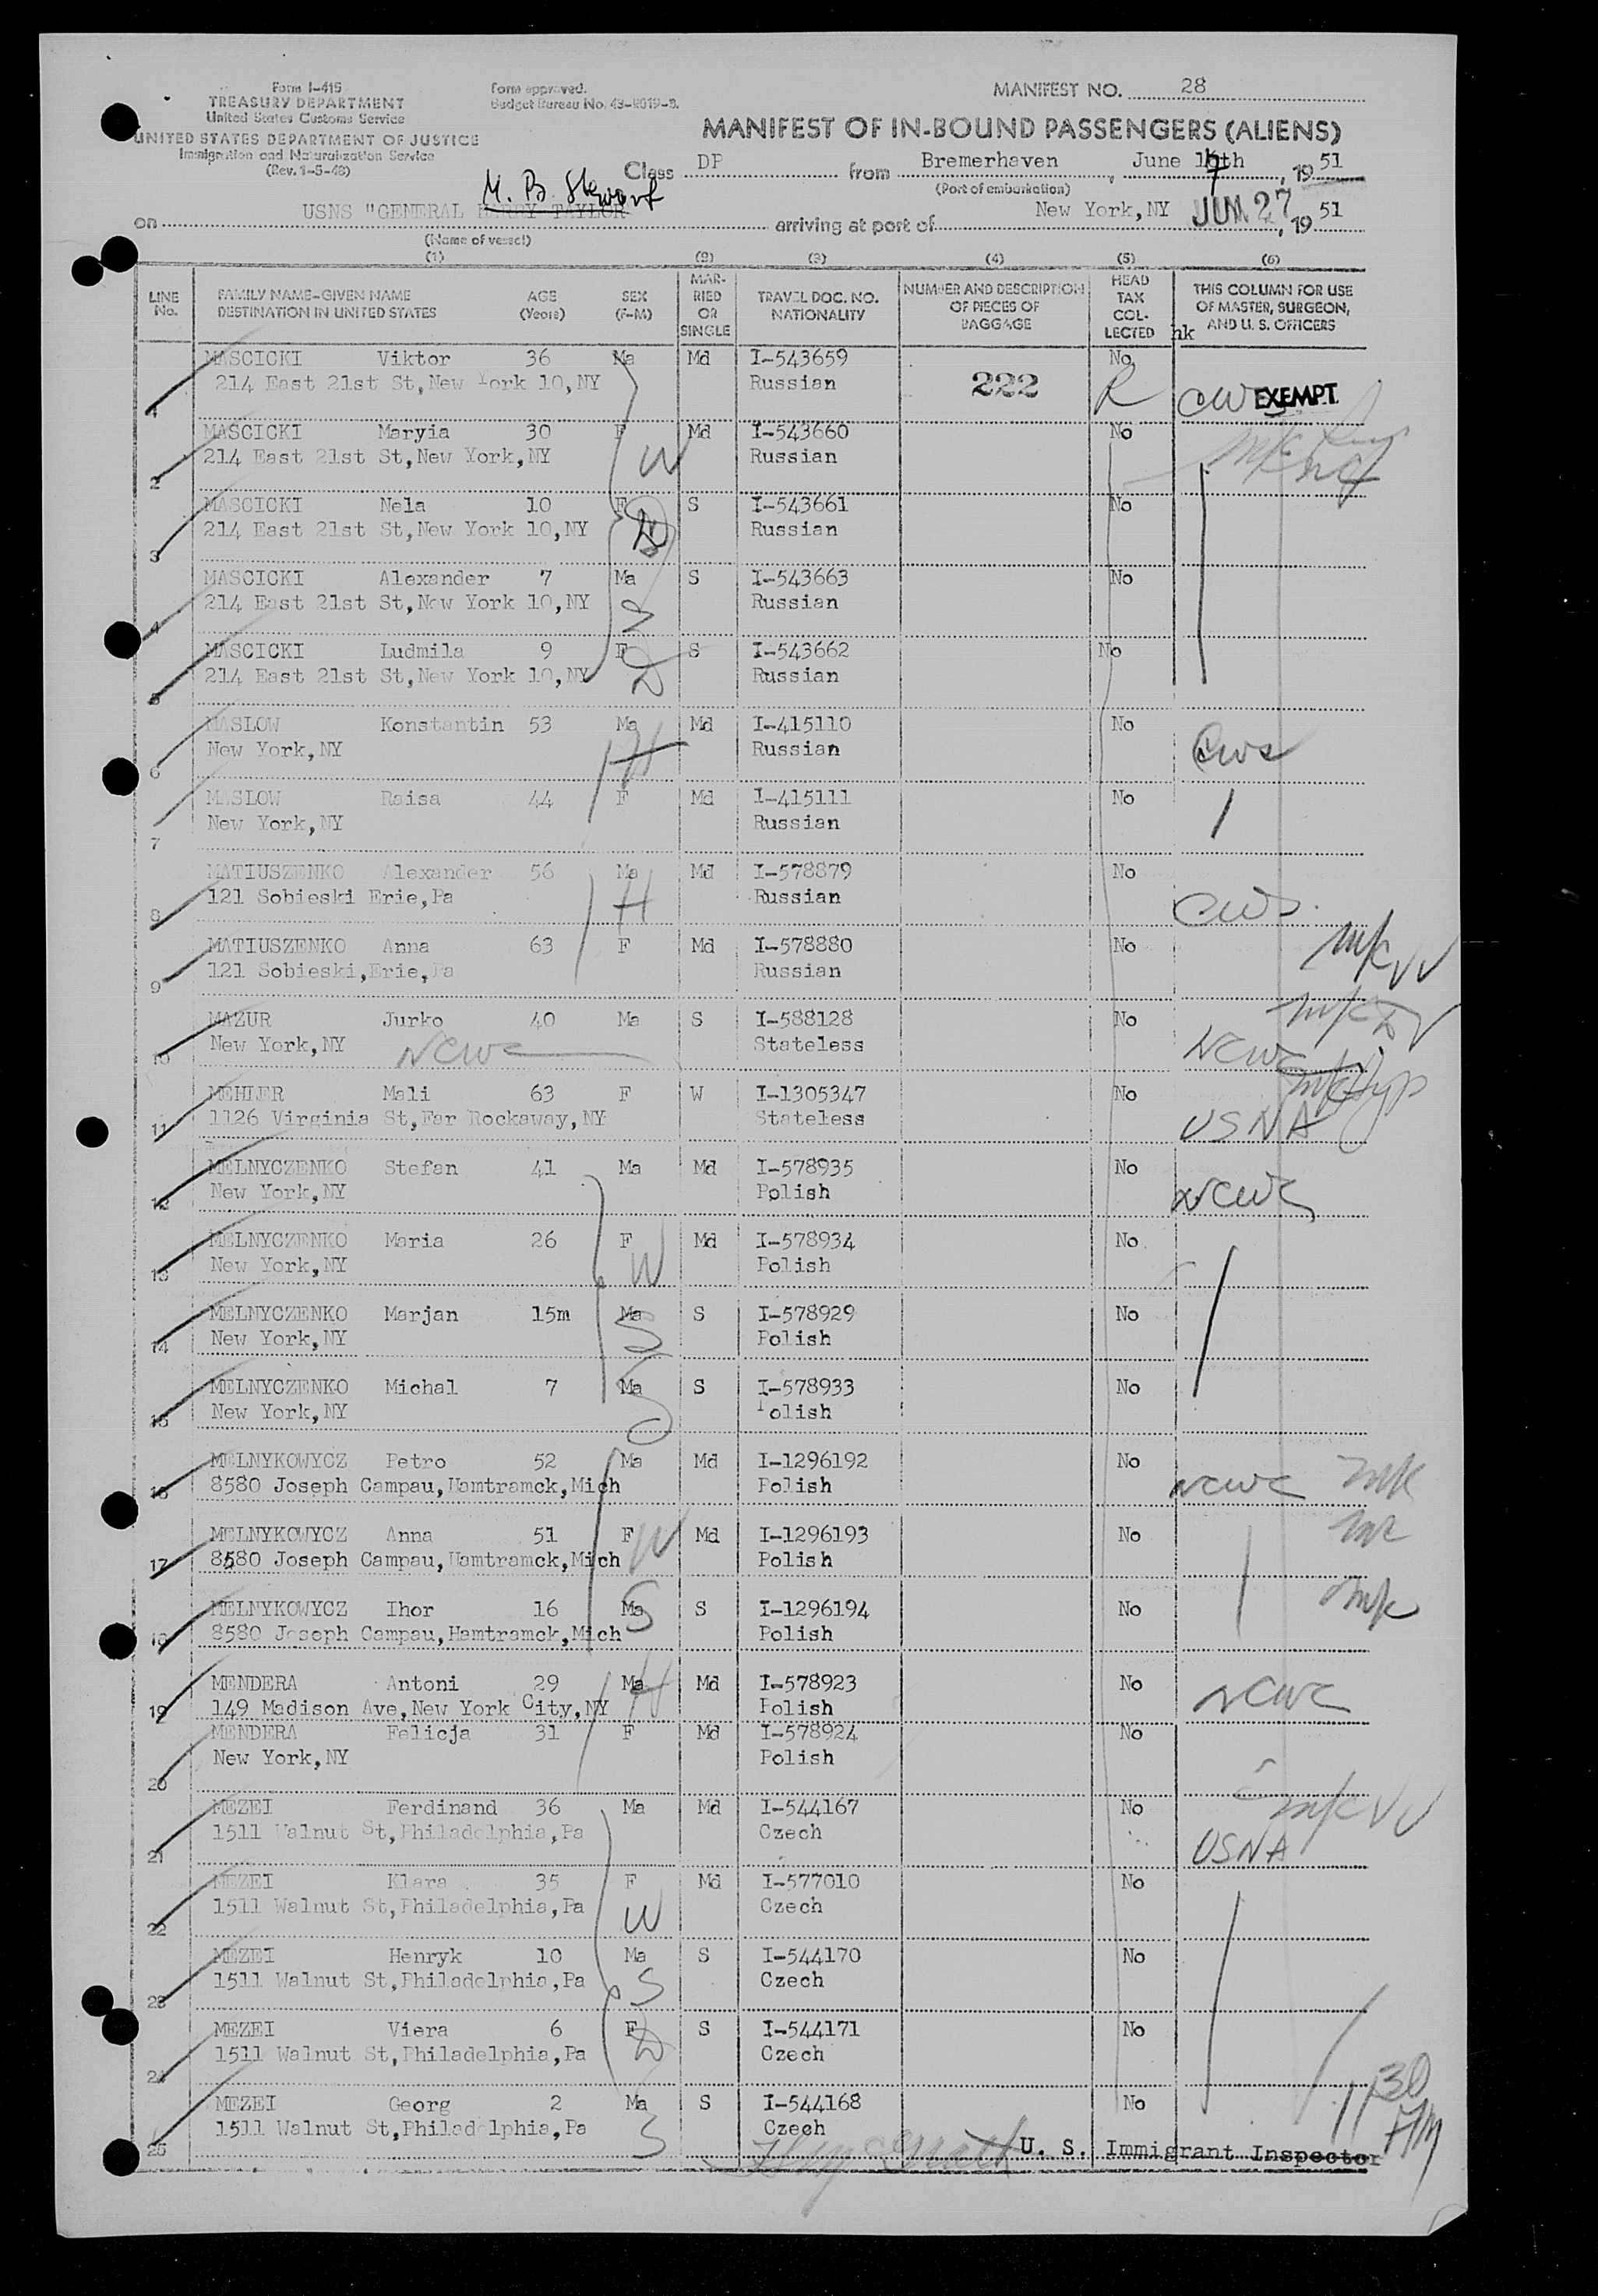 Form I-415
TREASURY DEPARTMENT
United States Customs Service
UNITED STATES DEPARTMENT OF JUSTICE
Immigration and Naturalization Service
(Rev. 1-5-48)
Form approved.
Budget Bureau No. 43-R019-3.
MANIFEST NO. 28
MANIFEST OF IN-BOUND PASSENGERS (ALIENS)
Class DP from Bremerhaven, June 17th, 1951
(Port of embarkation)
M. B. Stewart
on USNS "GENERAL HARRY TAYLOR arriving at port of New York,NY JUN 27, 1951
(Name of vessel)
(1) (2) (3) (4) (5) (6)
LINE No. FAMILY NAME-GIVEN NAME DESTINATION IN UNITED STATES AGE (Years) SEX (F-M) MARRIED OR SINGLE TRAVEL DOC. NO. NATIONALITY NUMBER AND DESCRIPTION OF PIECES OF BAGGAGE HEAD TAX COLLECTED THIS COLUMN FOR USE OF MASTER, SURGEON, AND U. S. OFFICERS
hk
MASCICKI Viktor 36 Ma Md I-543659 No
1 214 East 21st St,New York 10,NY Russian 222 R CWS EXEMPT
MASCICKI Maryia 30 F Md I-543660 No
2 214 East 21st St,New York,NY W Russian
MASCICKI Nela 10 F S I-543661 No
3 214 East 21st St,New York 10,NY D Russian
MASCICKI Alexander 7 Ma S I-543663 No
4 214 East 21st St,New York 10,NY S Russian
MASCICKI Ludmila 9 F S I-543662 No
5 214 East 21st St,New York 10,NY D Russian
MASLOW Konstantin 53 Ma Md I-415110 No
6 New York,NY H Russian CWS
MASLOW Raisa 44 F Md I-415111 No
7 New York,NY Russian
MATIUSZENKO Alexander 56 Ma Md I-578879 No
8 121 Sobieski Erie,Pa H Russian CWS
MATIUSZENKO Anna 63 F Md I-578880 No
9 121 Sobieski,Erie,Pa Russian
MAZUR Jurko 40 Ma S I-588128 No
10 New York,NY NCWC Stateless NCWC
MEHLER Mali 63 F W I-1305347 No
11 1126 Virginia St,Far Rockaway,NY Stateless USNA
MELNYCZENKO Stefan 41 Ma Md I-578935 No
12 New York,NY Polish NCWC
MELNYCZENKO Maria 26 F Md I-578934 No
13 New York,NY W Polish
MELNYCZENKO Marjan 15m Ma S I-578929 No
14 New York,NY S Polish
MELNYCZENKO Michal 7 Ma S I-578933 No
15 New York,NY S Polish
MELNYKOWYCZ Petro 52 Ma Md I-1296192 No
16 8580 Joseph Campau,Hamtramck,Mich Polish NCWC
MELNYKOWYCZ Anna 51 F W Md I-1296193 No
17 8580 Joseph Campau,Hamtramck,Mich Polish
MELNYKOWYCZ Ihor 16 Ma S S I-1296194 No
18 8580 Joseph Campau,Hamtramck,Mich Polish
MENDERA Antoni 29 Ma H Md I-578923 No
19 149 Madison Ave,New York City,NY Polish NCWC
MENDERA Felicja 31 F Md I-578924 No
20 New York,NY Polish
MEZEI Ferdinand 36 Ma Md I-544167 No
21 1511 Walnut St,Philadelphia,Pa Czech USNA
MEZEI Klara 35 F Md I-577010 No
22 1511 Walnut St,Philadelphia,Pa W Czech
MEZEI Henryk 10 Ma S I-544170 No
23 1511 Walnut St,Philadelphia,Pa S Czech
MEZEI Viera 6 F S I-544171 No
24 1511 Walnut St,Philadelphia,Pa D Czech
MEZEI Georg 2 Ma S I-544168 No
25 1511 Walnut St,Philadelphia,Pa S Czech
1130 AM
U. S. Immigrant Inspector